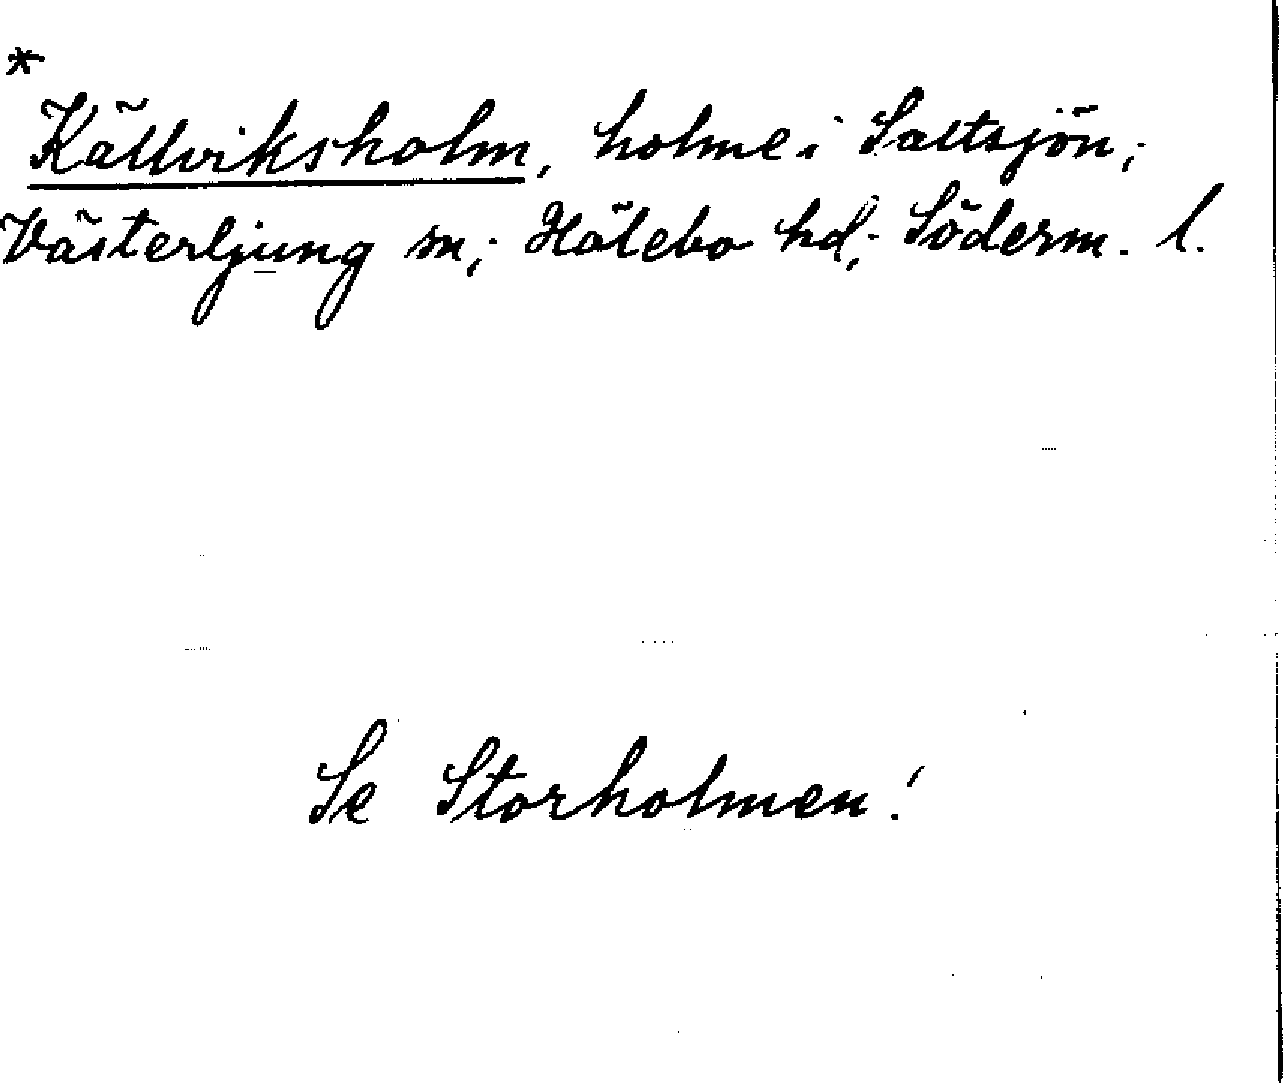 *
Källviksholm, holme i Saltsjön;
Västerljung sn; Hölebo hd; Söderm. l.
Se Storholmen!